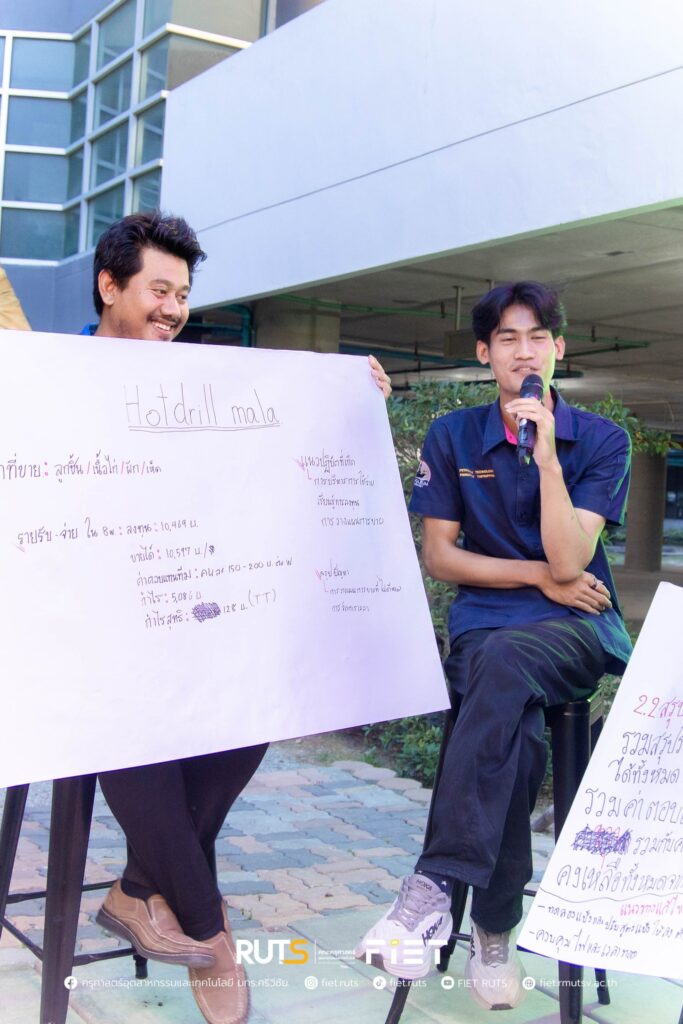 Hotdrill mala
าที่ขาย: ลูกชิ้น /เนื้อไก่ /ผัก/เห็ด
รายรับ-จ่าย ใน 8w: ลงทุน: 10,469 บ.
ขายได้: 10,597 บ./
ค่าตอบแทนทีม: คนละ 150-200 บ.
กำไร: 5,086 บ
กำไรสุทธิ: 128 บ. (TT)
แนวปฏิบัติที่เกิด
การบริหารการใช้จ่าย
เรียนรู้การลงทุน
การวางแผนการขาย
2.2 สรุป
รวมสรุปร
ได้ทั้งหมด
รวมค่าตอบ
รวมกับค
คงเหลือทั้งหมดจา
แนวทางแก้ไข
-ควบคุมไฟและเวลาทอด
RUTS
FIET
ครุศาสตร์อุตสาหกรรมและเทคโนโลยี มทร.ศรีวิชัย
fiet.ruts
fiet.ruts
FIET RUTS
fiet.rmutsv.ac.th
HOKA